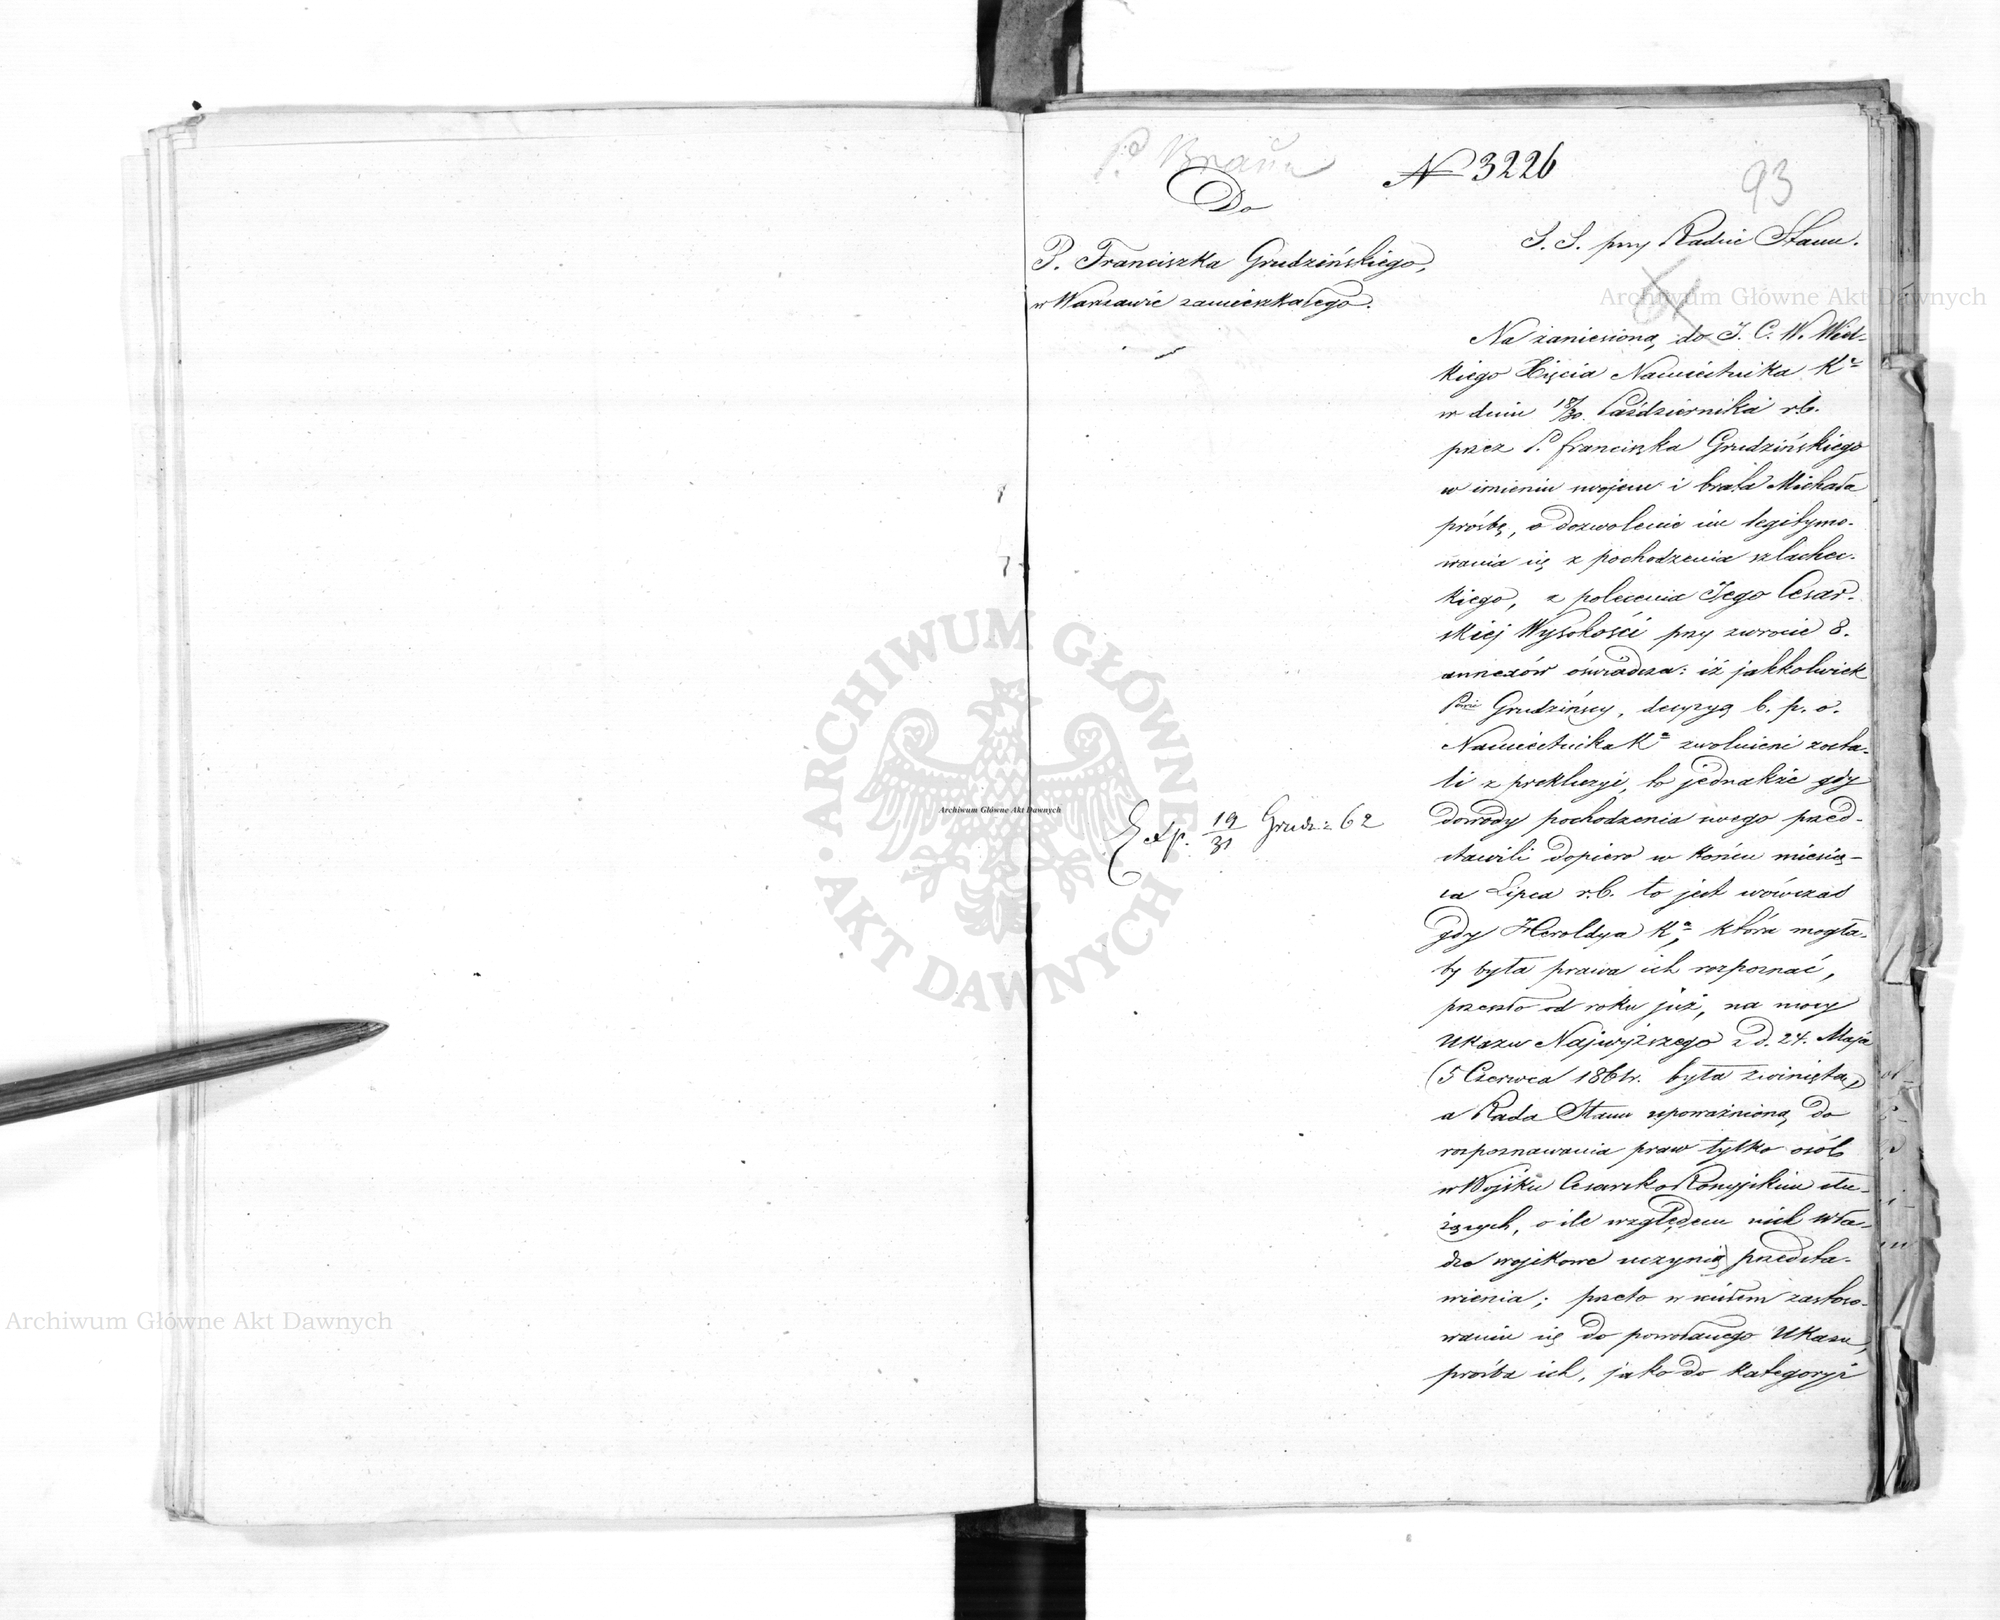 P. Braun
№ 3226
93
Do
P. Franciszka Grudzińskiego,
w Warszawie zamieszkałego.
S. S. przy Radzie Stanu.
Na zaniesioną do J. C. W. Wiel-
kiego Xięcia Namiestnika Kr
w dniu 18/30 Października r.b.
przez P. Franciszka Grudzińskiego
w imieniu swojem i brata Michała
prośbę, o dozwolenie im legitymo-
wania się z pochodzenia szlachec-
kiego, z polecenia Jego Cesar-
skiej Wysokości przy zwrocie 8.
annexów oświadcza: iż jakkolwiek
Panie Grudzińscy, decyzyą b. p. o.
Namiestnika Ka zwolnieni zosta-
li z prekluzyi, to jednakże gdy
dowody pochodzenia swego przed-
stawili dopiero w końcu miesią-
ca Lipca r.b. to jest wówczas
gdy Heroldya Ka, która mogła-
by była prawa ich rozpoznać,
przeszło od roku już, na mocy
Ukazu Najwyższego z d. 24. Maja
(5 Czerwca 1861 r. była zwinięta,
a Rada Stanu upoważnioną do
rozpoznawania praw tylko osób
w Wojsku Cesarsko Rossyjskiem słu-
żących, o ile względem nich wła-
dze wojskowe uczynią przedsta-
wienia; przeto w ścisłem zastoso-
waniu się do powołanego Ukazu,
prośba ich, jako do kategoryi
Exp. 19/31 Grud: 62
ARCHIWUM GŁÓWNE
AKT DAWNYCH
Archiwum Główne Akt Dawnych
Archiwum Główne Akt Dawnych
Archiwum Główne Akt Dawnych